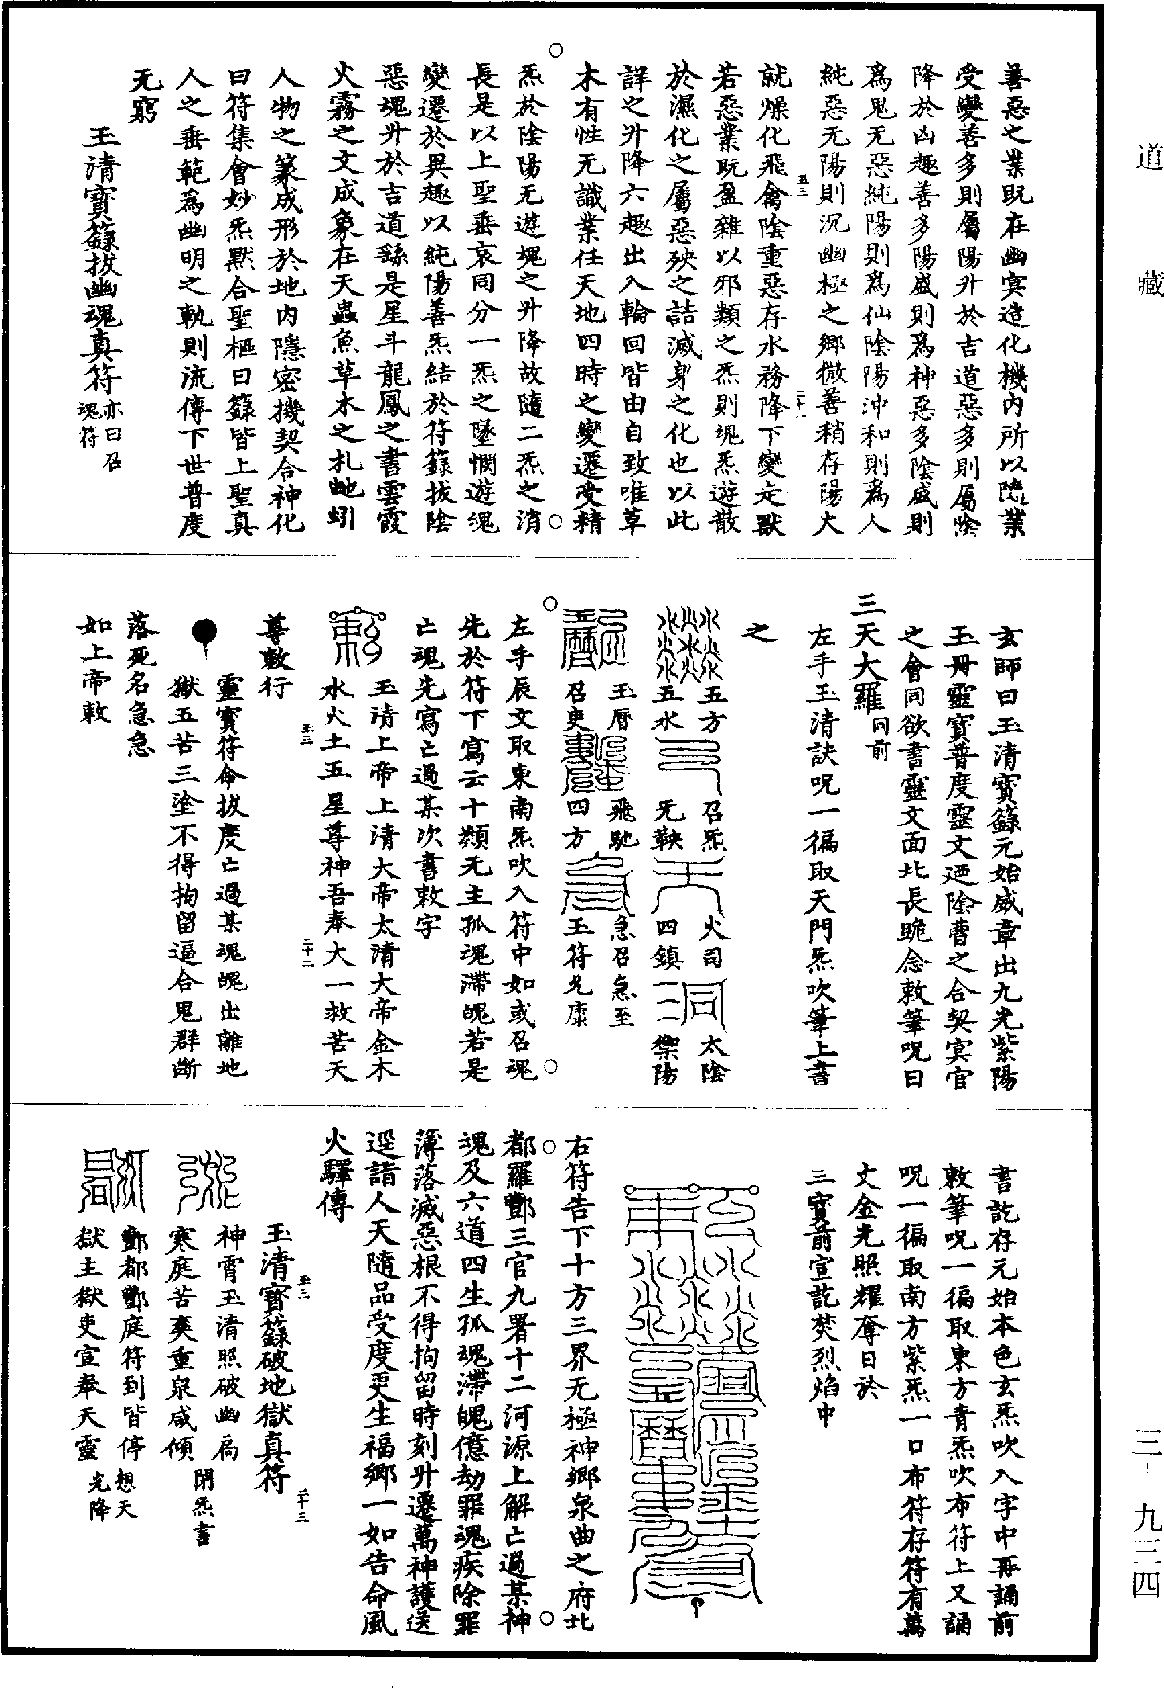 道藏
善惡之業既在幽冥造化機內所以隨業
受變善多則屬陽升於吉道惡多則屬陰
降於凶趣善多陽盛則為神惡多陰盛則
為鬼无惡純陽則為仙陰陽沖和則為人
純惡无陽則沉幽極之鄉微善稍存陽火
就燥化飛禽陰重惡存水務降下變走獸
若惡業既盈雜以邪類之炁則魂炁遊散
於濕化之屬惡殃之詰減身之化也以此
詳之升降六趣出入輪回皆由自致唯草
木有性无識業任天地四時之變遷受精
炁於陰陽无遊魂之升降故隨二炁之消
長是以上聖垂哀同分一炁之墜憫遊魂
變遷於異趣以純陽善炁結於符籙拔陰
惡魂升於吉道繇是星斗龍鳳之書雲霞
火霧之文成象在天蟲魚草木之札虵蚓
人物之篆成形於地內隱密機契合神化
曰符集會妙炁默合聖樞曰籙皆上聖真
人之垂範為幽明之軌則流傳下世普度
无窮
玉清寶籙拔幽魂真符亦曰召魂符
玄師曰玉清寶籙元始威章出九光紫陽
玉冊靈寶普度靈文迺陰曹之合契冥官
之會同欲書靈文面北長跪念敕筆呪曰
三天大羅同前
左手玉清訣呪一徧取天門炁吹筆上書
之
五方
五水
召炁
无鞅
火司
四鎮
太陰
禦防
玉曆
召吏
飛馳
四方
急召急至
玉符允康
左手辰文取東南炁吹入符中如或召魂
先於符下寫云十類无主孤魂滯魄若是
亡魂先寫亡過某次書敕字
玉清上帝上清大帝太清大帝金木
水火土五星尊神吾奉大一救苦天
尊敕行
靈寶符命拔度亡過某魂魄出離地
獄五苦三塗不得拘留逼合鬼群斷
落死名急急
如上帝敕
書訖存元始本色玄炁吹入字中再誦前
敕筆呪一徧取東方青炁吹布符上又誦
呪一徧取南方紫炁一口布符存符有萬
丈金光照耀奪日於
三寶前宣訖焚烈焰中
右符告下十方三界无極神鄉泉曲之府北
都羅酆三官九署十二河源上解亡過某神
魂及六道四生孤魂滯魄億劫罪魂疾除罪
簿落滅惡根不得拘留時刻升遷萬神護送
逕詣人天隨品受度更生福鄉一如告命風
火驛傳
玉清寶籙破地獄真符
神霄玉清照破幽扃
寒庭苦爽重泉咸傾閉炁書
酆都酆庭符到皆停
獄主獄吏宣奉天靈想天光降
三一九三四